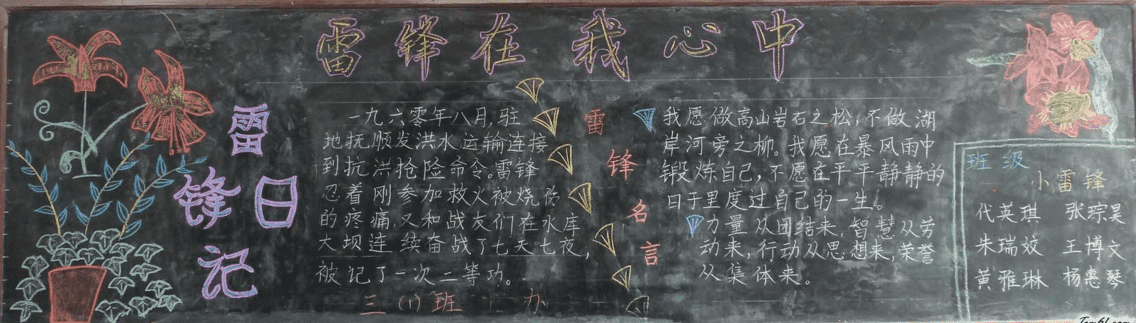 雷锋在我心中
雷锋日记
一九六零年八月,驻
地抚顺发洪水运输连接
到抗洪抢险命令。雷锋
忍着刚参加救火被烧伤
的疼痛又和战友们在水库
大坝连续奋战了七天七夜,
被记了一次二等功。
三(1)班 办
雷锋名言
我愿做高山岩石之松,不做湖
岸河旁之柳。我愿在暴风雨中
锻炼自己,不愿在平平静静的
日子里度过自己的一生。
力量从团结来,智慧从劳
动来,行动从思想来,荣誉
从集体来。
班级
小雷锋
代英琪 张琮昊
朱瑞姣 王博文
黄雅琳 杨惠琴